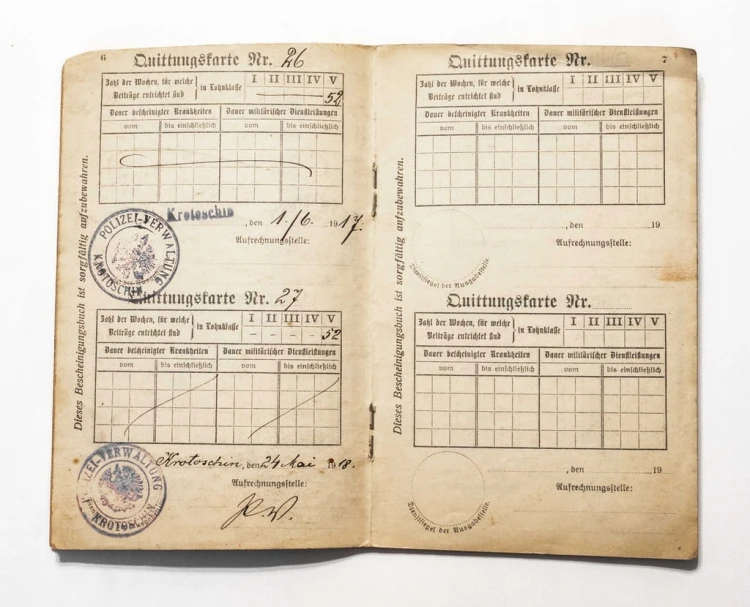 6
Quittungskarte Nr. 26
Zahl der Wochen, für welche Beiträge entrichtet sind } in Lohnklasse I II III IV V
52
Dauer bescheinigter Krankheiten Dauer militärischer Dienstleistungen
vom bis einschließlich vom bis einschließlich
Krotoschin, den 1./6. 1917.
Aufrechnungsstelle:
POLIZEI-VERWALTUNG KROTOSCHIN
Quittungskarte Nr. 27
Zahl der Wochen, für welche Beiträge entrichtet sind } in Lohnklasse I II III IV V
– – – – 52
Dauer bescheinigter Krankheiten Dauer militärischer Dienstleistungen
vom bis einschließlich vom bis einschließlich
Krotoschin, den 24 Mai 1918.
Aufrechnungsstelle:
P.V.
POLIZEI-VERWALTUNG KROTOSCHIN
Dieses Bescheinigungsbuch ist sorgfältig aufzubewahren.
7
Quittungskarte Nr.
Zahl der Wochen, für welche Beiträge entrichtet sind } in Lohnklasse I II III IV V
Dauer bescheinigter Krankheiten Dauer militärischer Dienstleistungen
vom bis einschließlich vom bis einschließlich
, den 19
Aufrechnungsstelle:
Dienstsiegel der Ausgabestelle.
Quittungskarte Nr.
Zahl der Wochen, für welche Beiträge entrichtet sind } in Lohnklasse I II III IV V
Dauer bescheinigter Krankheiten Dauer militärischer Dienstleistungen
vom bis einschließlich vom bis einschließlich
, den 19
Aufrechnungsstelle:
Dienstsiegel der Ausgabestelle.
Dieses Bescheinigungsbuch ist sorgfältig aufzubewahren.